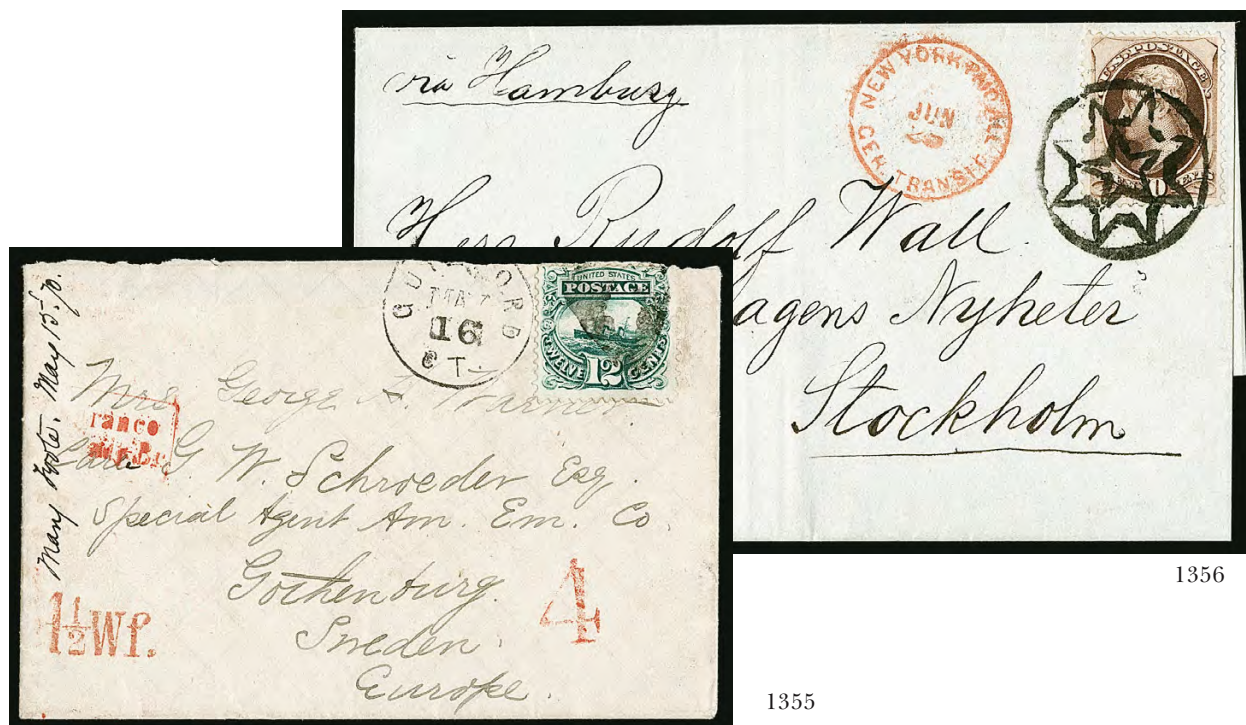 via Hamburg
NEW YORK PAID ALL
JUN
GER. TRANSIT
U.S. POSTAGE
Herr Rudolf Wall
agens Nyheter
Stockholm
1356
GUILFORD
MAY
16
CT.
UNITED STATES
POSTAGE
TWELVE 12 CENTS
Many Foote. May 15 /70.
Mrs George H. Warner
ranco
Care G. W. Schroeder Esq.
Special Agent Am. Em. Co.
Gothenburg.
Sweden.
Europe.
1½Wf.
4
1355